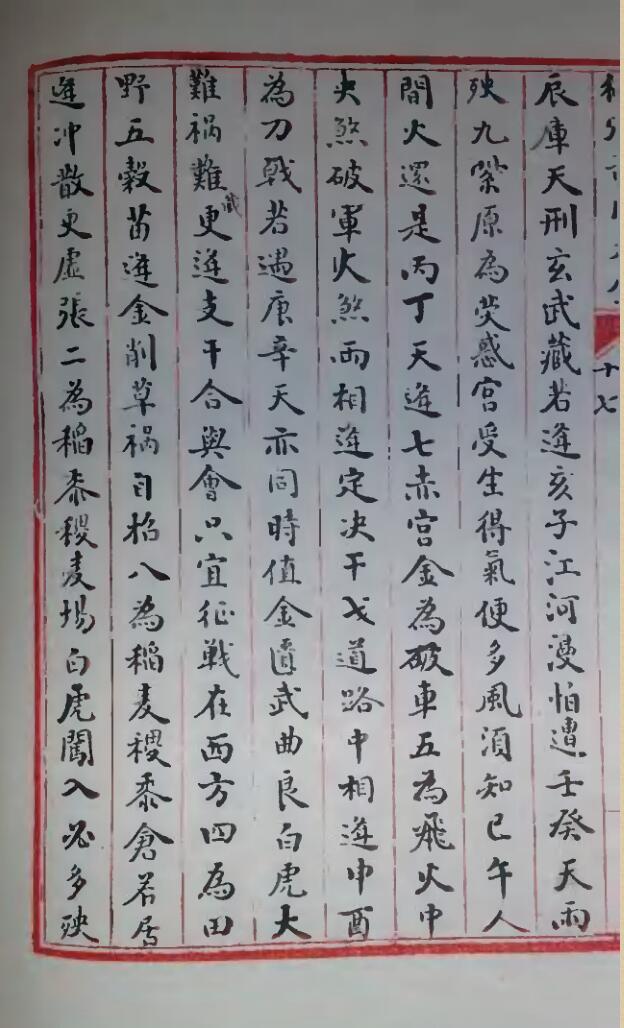 十七
辰庫天刑玄武藏若逢亥子江河漫怕遭壬癸天雨
殃九紫原為熒惑宮受生得氣便多風須知巳午人
間火還是丙丁天逢七赤宮金為破車五為飛火中
央煞破軍火煞兩相逢定决干戈道路中相逢申酉
為刀戟若遇庚辛天亦同時值金匱武曲良白虎大
難祸難歳更逢支干合與會只宜征戰在西方四為田
野五穀苗逢金削草祸自招八為稻麦稷黍倉若居
逢冲散更虛張二為稲黍稷麦場白虎闖入必多殃